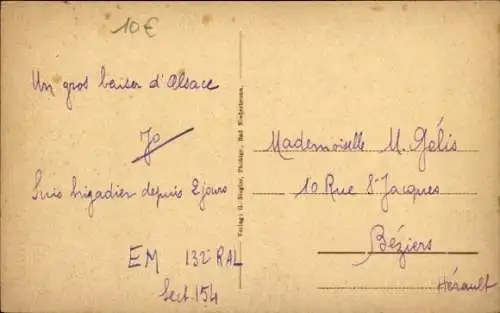 10€
Un gros baiser d'Alsace
Jo
Suis brigadier depuis 2 jours
EM 132e RAL
Sect. 154
Verlag: G. Ziegler, Photogr., Bad Niederbronn.
Mademoiselle M. Gélis
10 Rue St Jacques
Béziers
Hérault